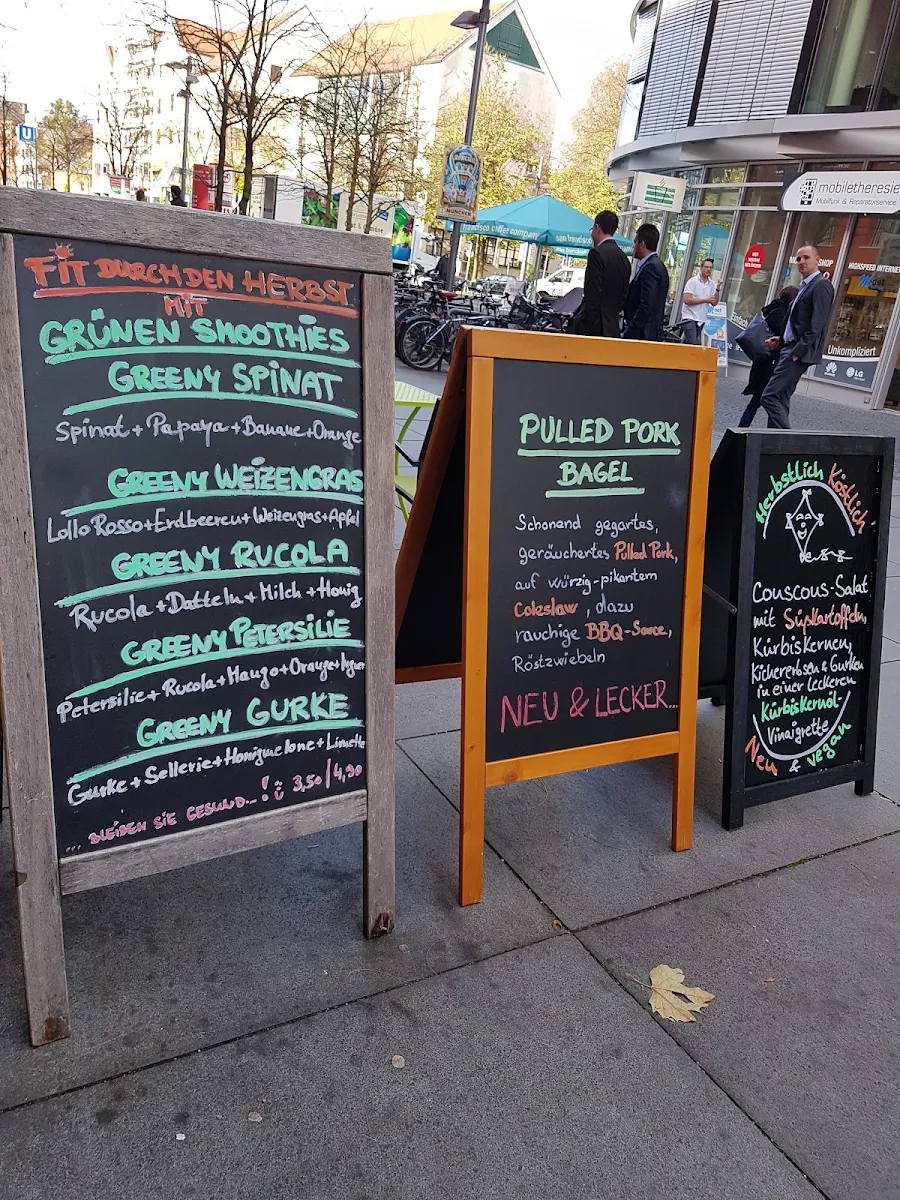 FIT DURCH DEN HERBST
MIT
GRÜNEN SMOOTHIES
GREENY SPINAT
Spinat + Papaya + Banane + Orange
GREENY WEIZENGRAS
Lollo Rosso + Erdbeeren + Weizengras + Apfel
GREENY RUCOLA
Rucola + Datteln + Milch + Honig
GREENY PETERSILIE
Petersilie + Rucola + Mango + Orange + Ingwer
GREENY GURKE
Gurke + Sellerie + Honigmelone + Limette
... BLEIBEN SIE GESUND...! 3,50/4,90
PULLED PORK
BAGEL
Schonend gegartes,
geräuchertes Pulled Pork,
auf würzig-pikantem
Coleslaw, dazu
rauchige BBQ-Sauce,
Röstzwiebeln
NEU & LECKER...
Herbstlich Köstlich
Couscous-Salat
mit Süßkartoffeln,
Kürbiskernen,
Kichererbsen & Gurken
in einer leckeren
Kürbiskernöl-
Vinaigrette
Neu & vegan
U
MÜNCHEN
francisco coffee company
san francisco
mobiletheresie
Mobilfunk & Reparaturservice
HIGHSPEED INTERNET
SHOP
Einfach
Unkompliziert
HUAWEI
LG